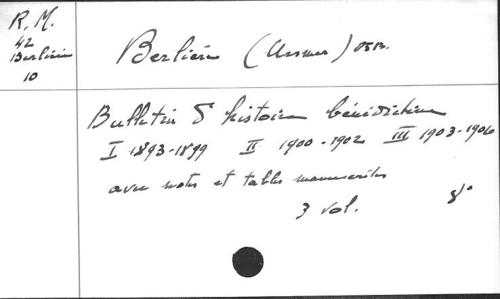 R. M.
42
Berlière
10
Berlière (Ursmer) OSB.
Bulletin d'histoire bénédictine
I 1893-1899 II 1900-1902 III 1903-1906
avec notes et tables manuscrites
3 vol. 8°